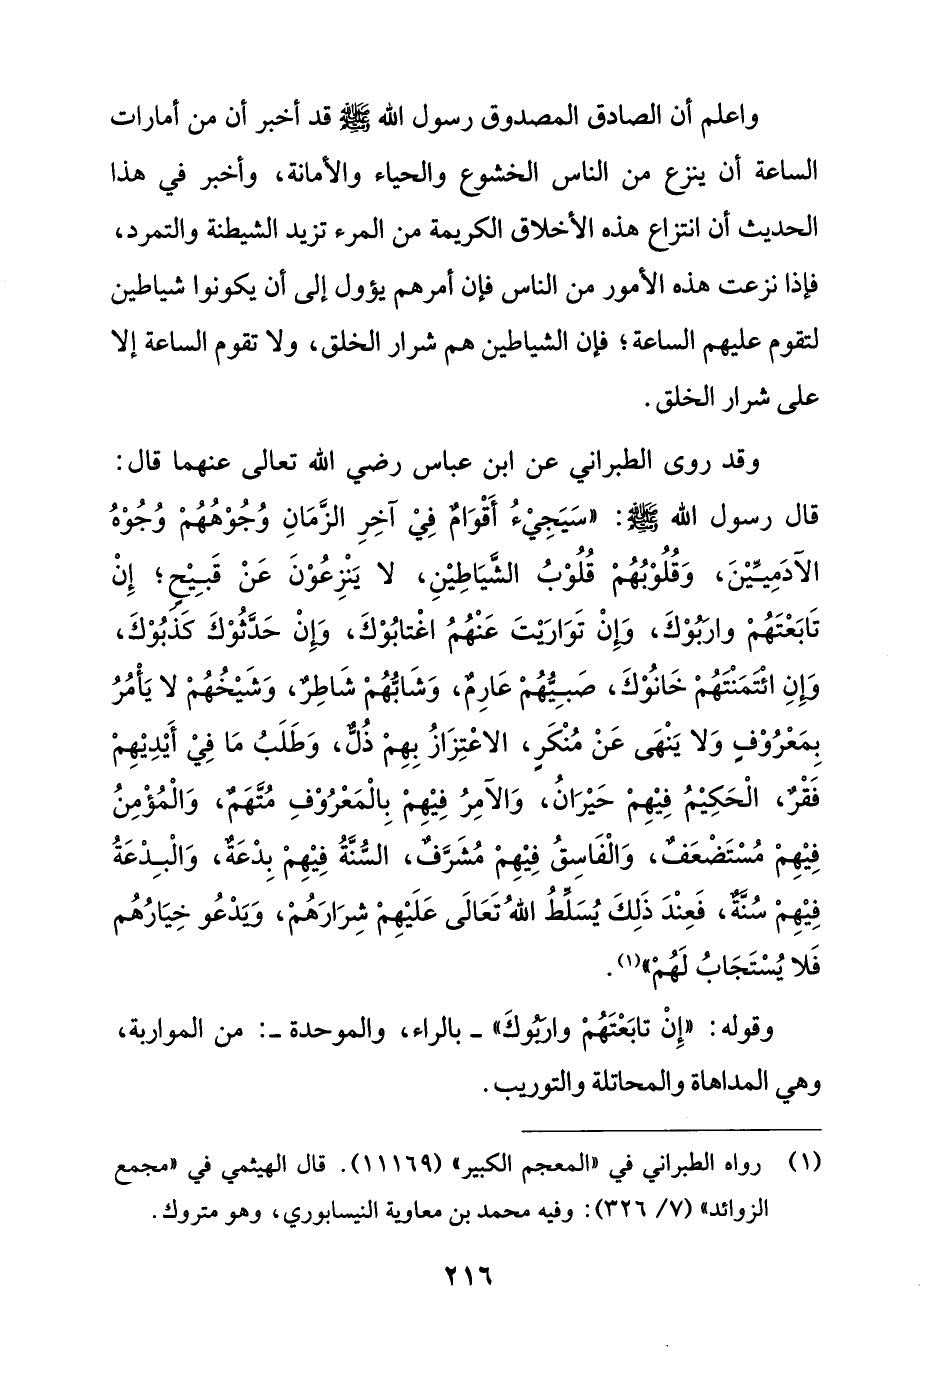 واعلم أن الصادق المصدوق رسول الله ﷺ قد أخبر أن من أمارات
الساعة أن ينزع من الناس الخشوع والحياء والأمانة، وأخبر في هذا
الحديث أن انتزاع هذه الأخلاق الكريمة من المرء تزيد الشيطنة والتمرد،
فإذا نزعت هذه الأمور من الناس فإن أمرهم يؤول إلى أن يكونوا شياطين
لتقوم عليهم الساعة؛ فإن الشياطين هم شرار الخلق، ولا تقوم الساعة إلا
على شرار الخلق.
وقد روى الطبراني عن ابن عباس رضي الله تعالى عنهما قال:
قال رسول الله ﷺ: «سَيَجِيْءُ أَقْوَامٌ فِيْ آخِرِ الزَّمَانِ وُجُوْهُهُمْ وُجُوْهُ
الآدَمِيِّيْنَ، وَقُلُوْبُهُمْ قُلُوْبُ الشَّيَاطِيْنِ، لا يَنْزِعُوْنَ عَنْ قَبِيْحٍ؛ إِنْ
تَابَعْتَهُمْ وارَبُوْكَ، وَإِنْ تَوَارَيْتَ عَنْهُمُ اغْتابُوْكَ، وَإِنْ حَدَّثُوْكَ كَذَبُوْكَ،
وَإِنِ ائْتَمَنْتَهُمْ خَانُوْكَ، صَبِيُّهُمْ عَارِمٌ، وَشَابُّهُمْ شَاطِرٌ، وَشَيْخُهُمْ لا يَأْمُرُ
بِمَعْرُوْفٍ وَلا يَنْهَى عَنْ مُنْكَرٍ، الاعْتِزَازُ بِهِمْ ذُلٌّ، وَطَلَبُ مَا فِيْ أَيْدِيْهِمْ
فَقْرٌ، الْحَكِيْمُ فِيْهِمْ حَيْرَانُ، وَالآمِرُ فِيْهِمْ بِالْمَعْرُوْفِ مُتَّهَمٌ، وَالْمُؤْمِنُ
فِيْهِمْ مُسْتَضْعَفٌ، وَالْفَاسِقُ فِيْهِمْ مُشَرَّفٌ، السُّنَّةُ فِيْهِمْ بِدْعَةٌ، وَالْبِدْعَةُ
فِيْهِمْ سُنَّةٌ، فَعِنْدَ ذَلِكَ يُسَلِّطُ اللهُ تَعَالَى عَلَيْهِمْ شِرَارَهُمْ، وَيَدْعُو خِيَارُهُم
فَلا يُسْتَجَابُ لَهُمْ»(١).
وقوله: «إِنْ تابَعْتَهُمْ وارَبُوكَ» ـ بالراء، والموحدة ـ: من المواربة،
وهي المداهاة والمحاتلة والتوريب.
(١) رواه الطبراني في «المعجم الكبير» (١١١٦٩). قال الهيثمي في «مجمع
الزوائد» (٧/ ٣٢٦): وفيه محمد بن معاوية النيسابوري، وهو متروك.
٢١٦